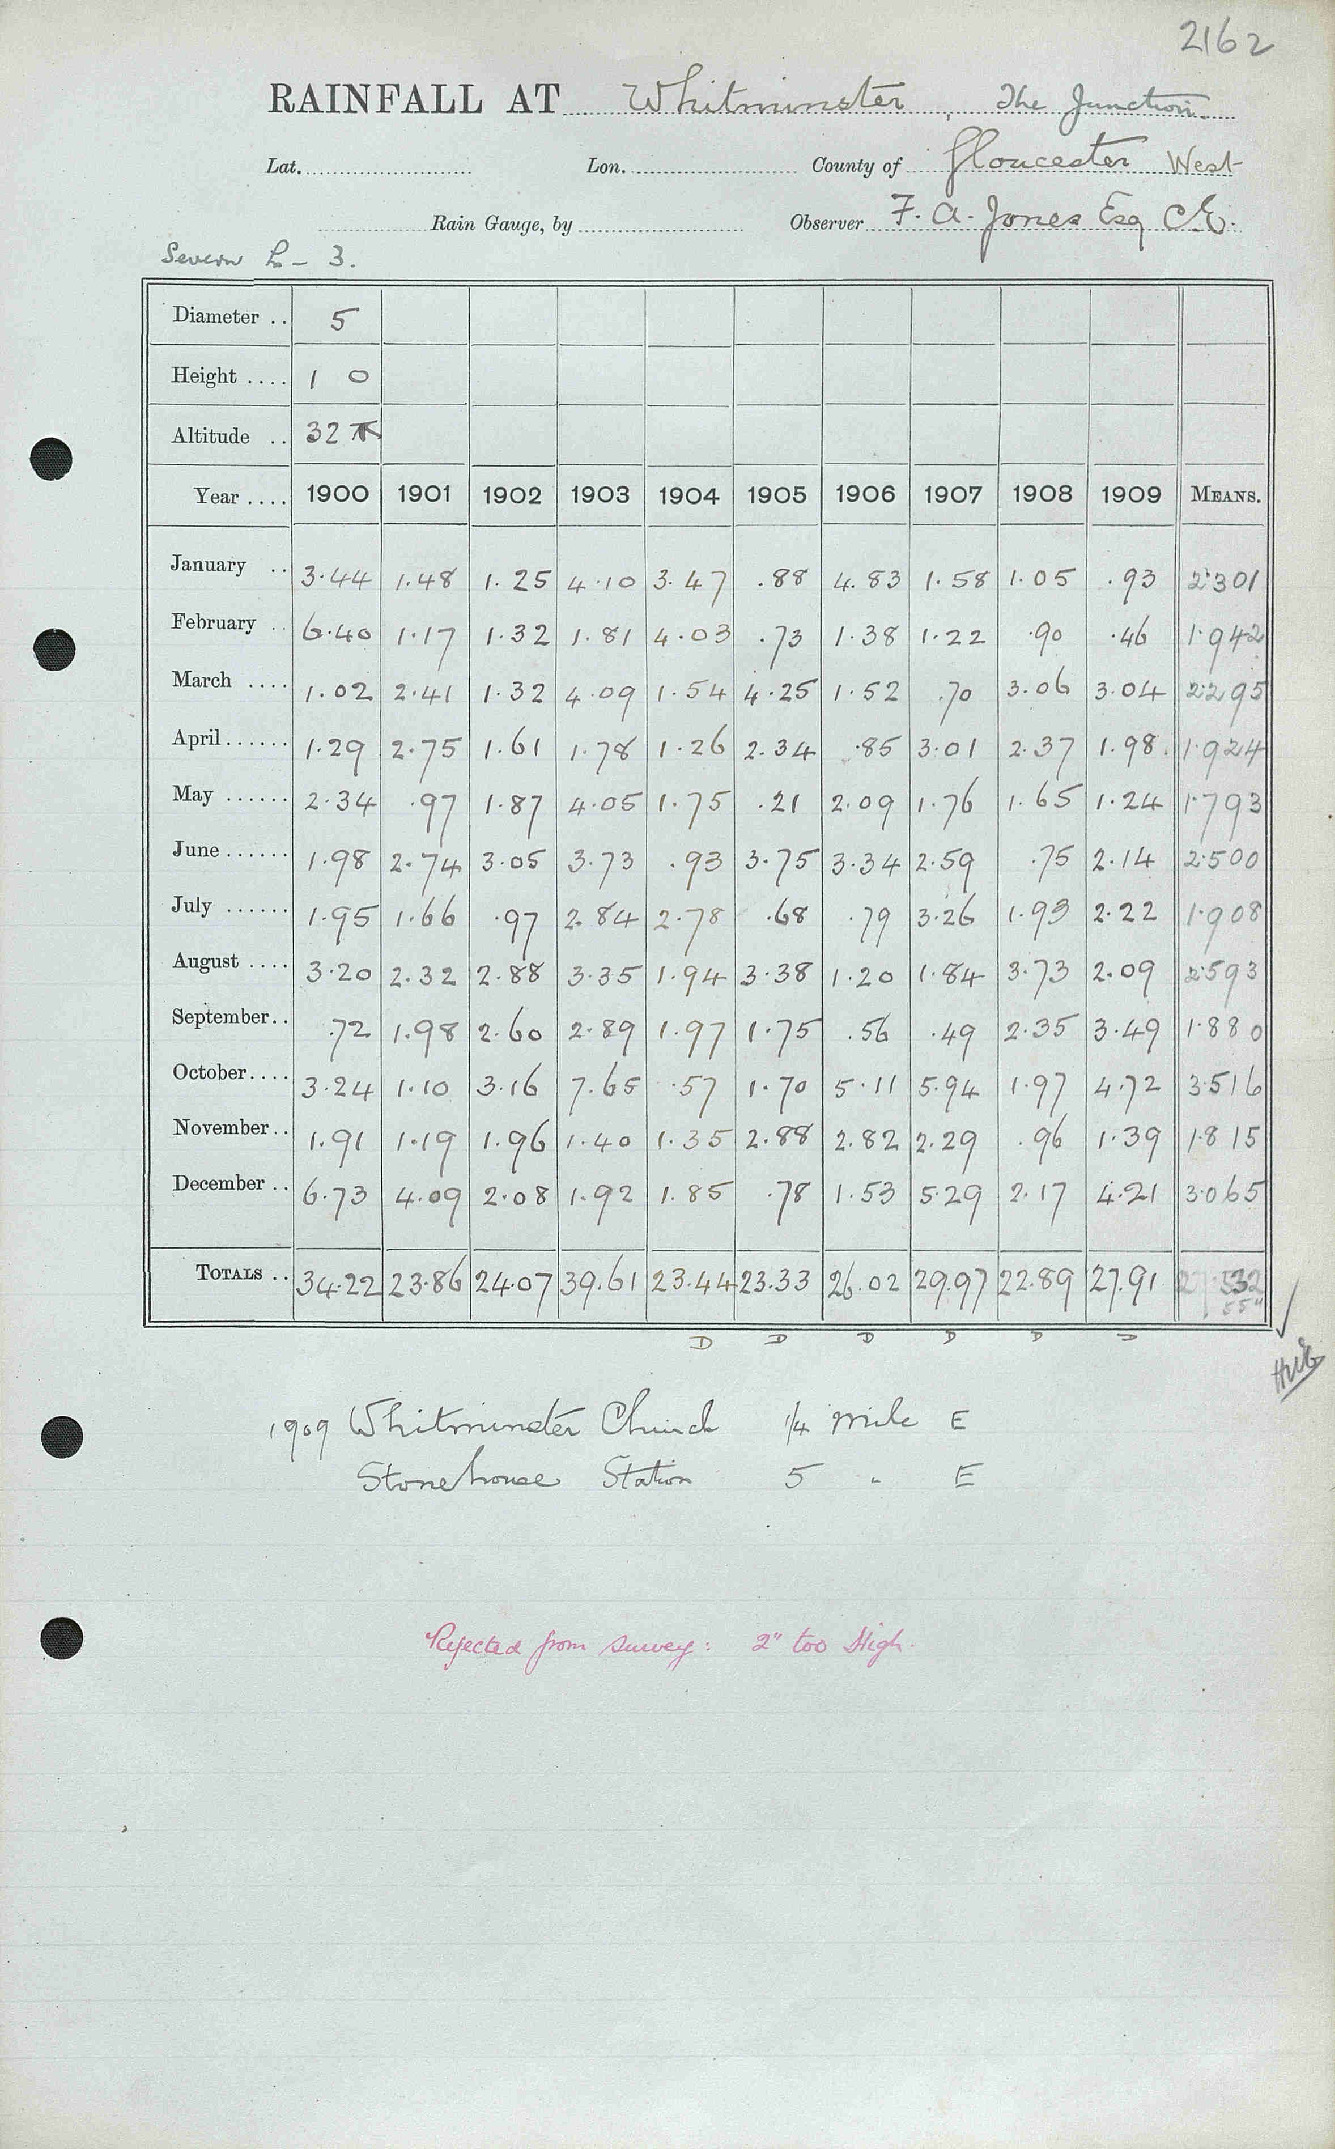 2162
RAINFALL AT Whitminster, The Junction.
Lat. Lon. County of Gloucester West
Rain Gauge, by Observer F. A. Jones Esq C.E.
Severn L - 3.
Diameter .. 5
Height .... 1 0
Altitude .. 32
Year .... 1900 1901 1902 1903 1904 1905 1906 1907 1908 1909 MEANS.
January .. 3.44 1.48 1.25 4.10 3.47 .88 4.83 1.58 1.05 .93 2.301
February .. 6.40 1.17 1.32 1.81 4.03 .73 1.38 1.22 .90 .46 1.942
March .... 1.02 2.41 1.32 4.09 1.54 4.25 1.52 .70 3.06 3.04 2.295
April...... 1.29 2.75 1.61 1.78 1.26 2.34 .85 3.01 2.37 1.98 1.924
May ...... 2.34 .97 1.87 4.05 1.75 .21 2.09 1.76 1.65 1.24 1.793
June...... 1.98 2.74 3.05 3.73 .93 3.75 3.34 2.59 .75 2.14 2.500
July ...... 1.95 1.66 .97 2.84 2.78 .68 .79 3.26 1.93 2.22 1.908
August .... 3.20 2.32 2.88 3.35 1.94 3.38 1.20 1.84 3.73 2.09 2.593
September.. .72 1.98 2.60 2.89 1.97 1.75 .56 .49 2.35 3.49 1.880
October.... 3.24 1.10 3.16 7.65 .57 1.70 5.11 5.94 1.97 4.72 3.516
November.. 1.91 1.19 1.96 1.40 1.35 2.88 2.82 2.29 .96 1.39 1.815
December .. 6.73 4.09 2.08 1.92 1.85 .78 1.53 5.29 2.17 4.21 3.065
TOTALS .. 34.22 23.86 24.07 39.61 23.44 23.33 26.02 29.97 22.89 27.91 27.532
D D D D D D
1909 Whitminster Church 1/4 mile E
Stonehouse Station 5 " E
Rejected from survey: 2" too High.